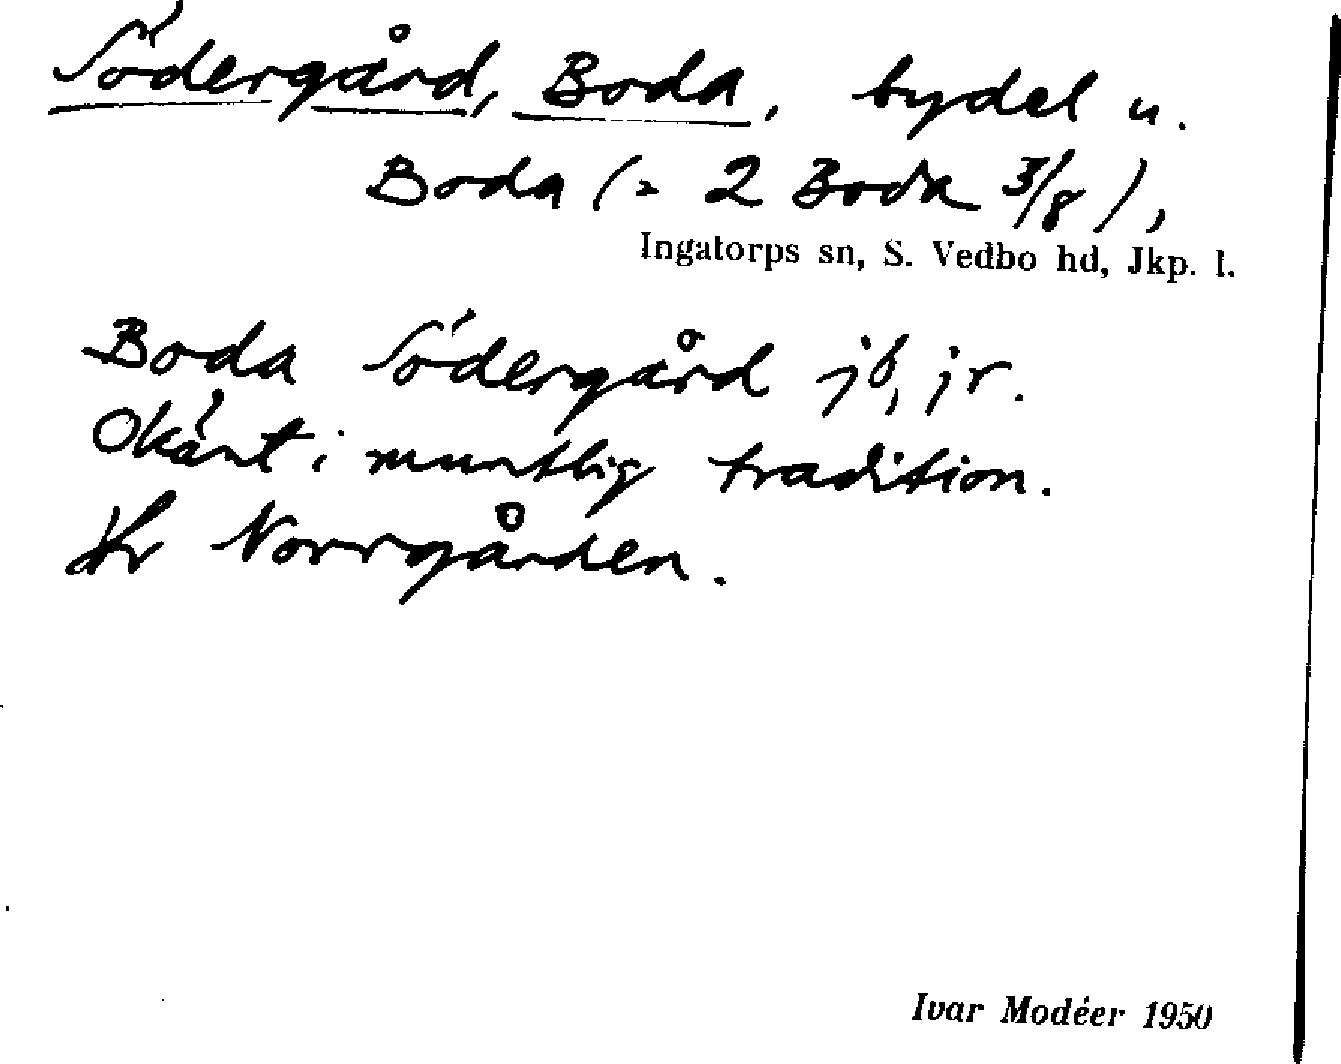 Södergård, Boda, bydel u.
Boda (= 2 Boda 3/8),
Ingatorps sn, S. Vedbo hd, Jkp. l.
Boda Södergård jb, jr.
Okänt i muntlig tradition.
Jfr Norrgården.
Ivar Modéer 1950